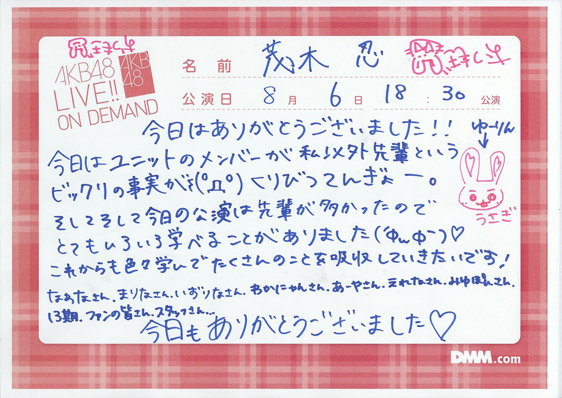 AKB48
LIVE!!
ON DEMAND
AKB
48
名前 茂木 忍
公演日 8月 6日 18:30 公演
今日はありがとうございました!!
ゆーりん
今日はユニットのメンバーが私以外先輩という
ビックリの事実が(°д°)くりびつてんぎょー。
うさぎ
そしてそして今日の公演は先輩が多かったので
とてもいろいろ学べることがありました(ΦωΦ)♡
これからも色々学んでたくさんのことを吸収していきたいです!
なぁなさん、まりなさん、いずりなさん、わかにゃんさん、あーやさん、えれなさん、みゆぽんさん、
13期、ファンの皆さん、スタッフさん...
今日もありがとうございました♡
DMM.com